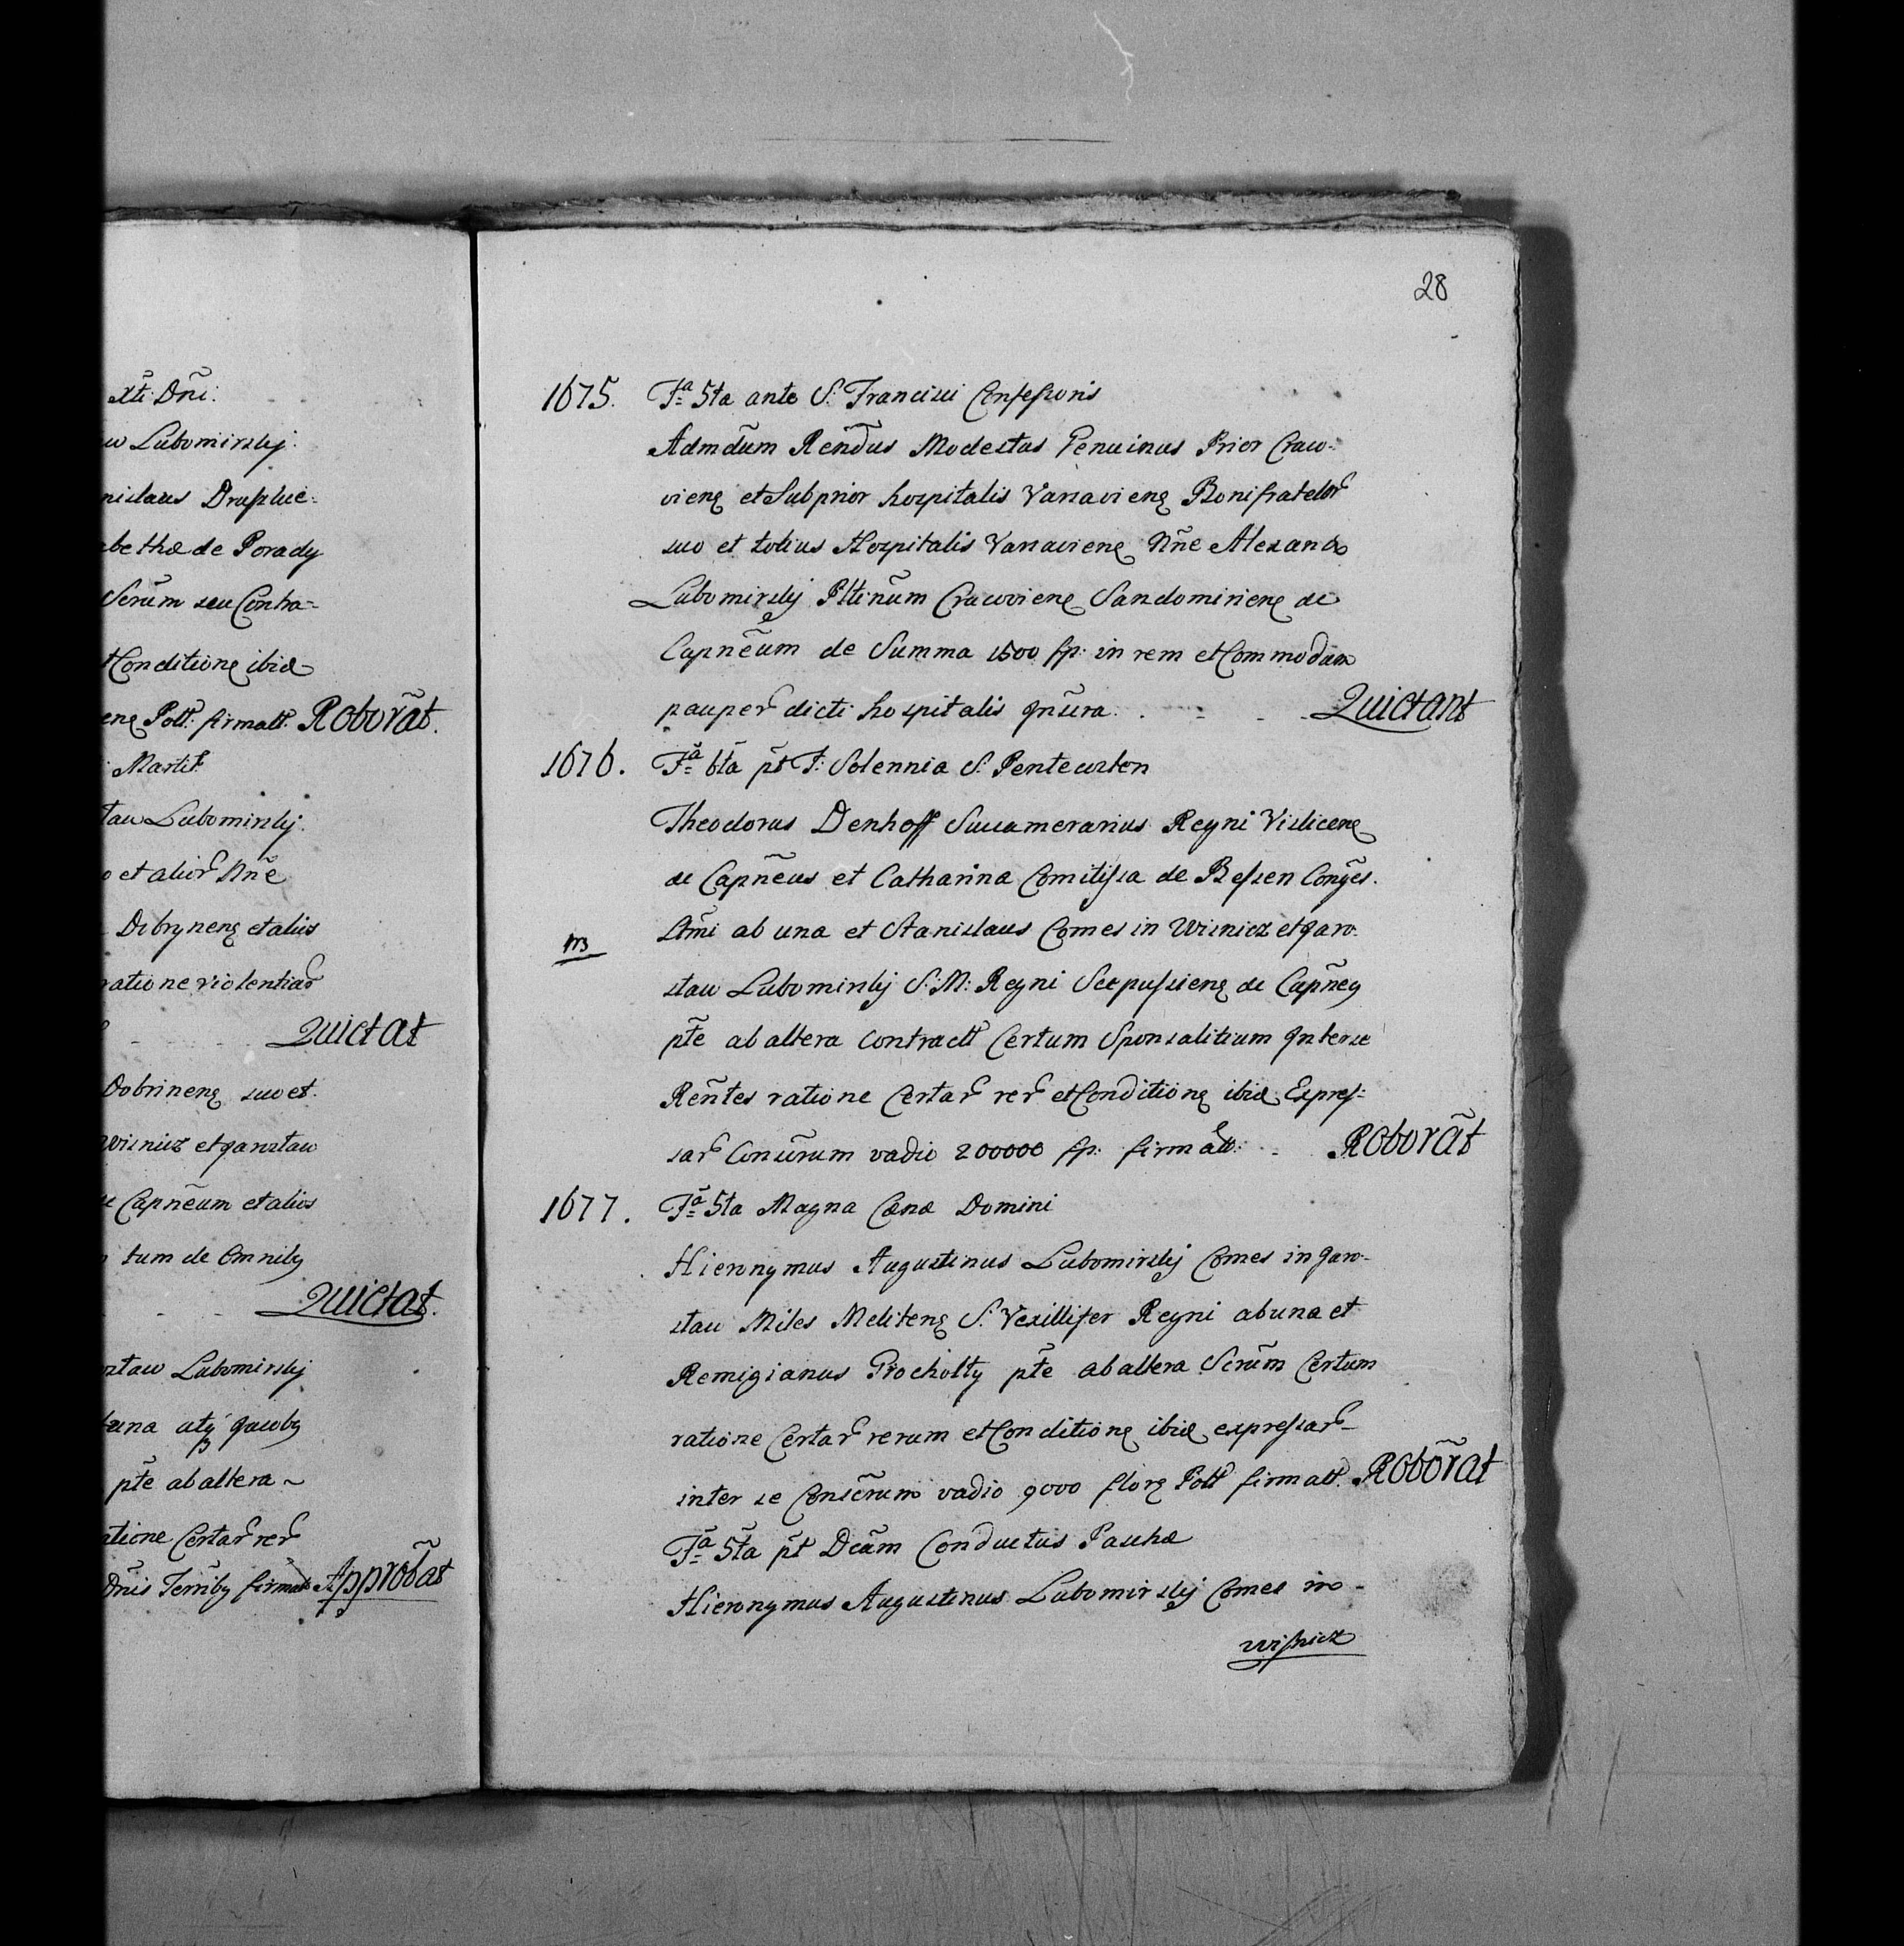 xti Dñi.
w Lubomirskij
nislaus Druszkie-
abethæ de Porady
Scrum seu Contra-
et Conditione ibid
Poll: firmatt. Roborãt.
Martii
taw Lubomirskij.
et alior Nñe
Dibrynenς et alius
ratione violentiar
Quictat
Dobrinenς suo et
Wisnicz et Jarostaw
Capñeum et alios
tum de Omniby
Quictat.
ostaw Lubomirskij
una utÿ Jacoby
pte ab altera ~
atione Certar rer
Dñis Terriby firmatt Approbãt
28
1675. Fa 5ta ante S: Francisci Confessoris
Admdum Rendus Modestus Genuinus Prior Craco-
vienς et Subprior hospitalis Varsavienς Bonifratelor
suo et totius Hospitalis Varsavienς Nñe Alexandr
Lubomirskij Pttinum Cracovienς Sandomirienς ac
Capñeum de Summa 1500 fp: in rem et Commodum
pauper dicti hospitalis Jnscra. . - - - Quictant
1676. Fa 6ta pt F: Solennia S. Pentecosten
Theodorus Denhoff Succamerarius Regni Vislicenς
ac Capñeus et Catharina Comitissa de Bessen Conges.
una ab una et Stanislaus Comes in Wisnicz et Jaro-
NB
staw Lubomirskij S: M: Regni Scepussienς ac Capñeς
pte ab altera contractt Certum Sponsalitium Jnter se
Rentes ratione Certar rer et Conditionς ibid Expres-
sar Conscrum vadio 200000 fp: firmatt: - Roborãt
1677. Fa 5ta Magna Cænæ Domini
Hieronymus Augustinus Lubomirskij Comes in Jaro-
staw Miles Melitenς S. Vexillifer Regni ab una et
Remigianus Grocholty pte ab altera Scrum Certum
ratione Certar rerum et Conditionς ibid expressar
inter se Conscrum vadio 9000 florς Poll firmatt. Roborãt
Fa 5ta pt Dcam Conductus Paschæ
Hieronymus Augustinus Lubomirskij Comes in -
Wisnicz